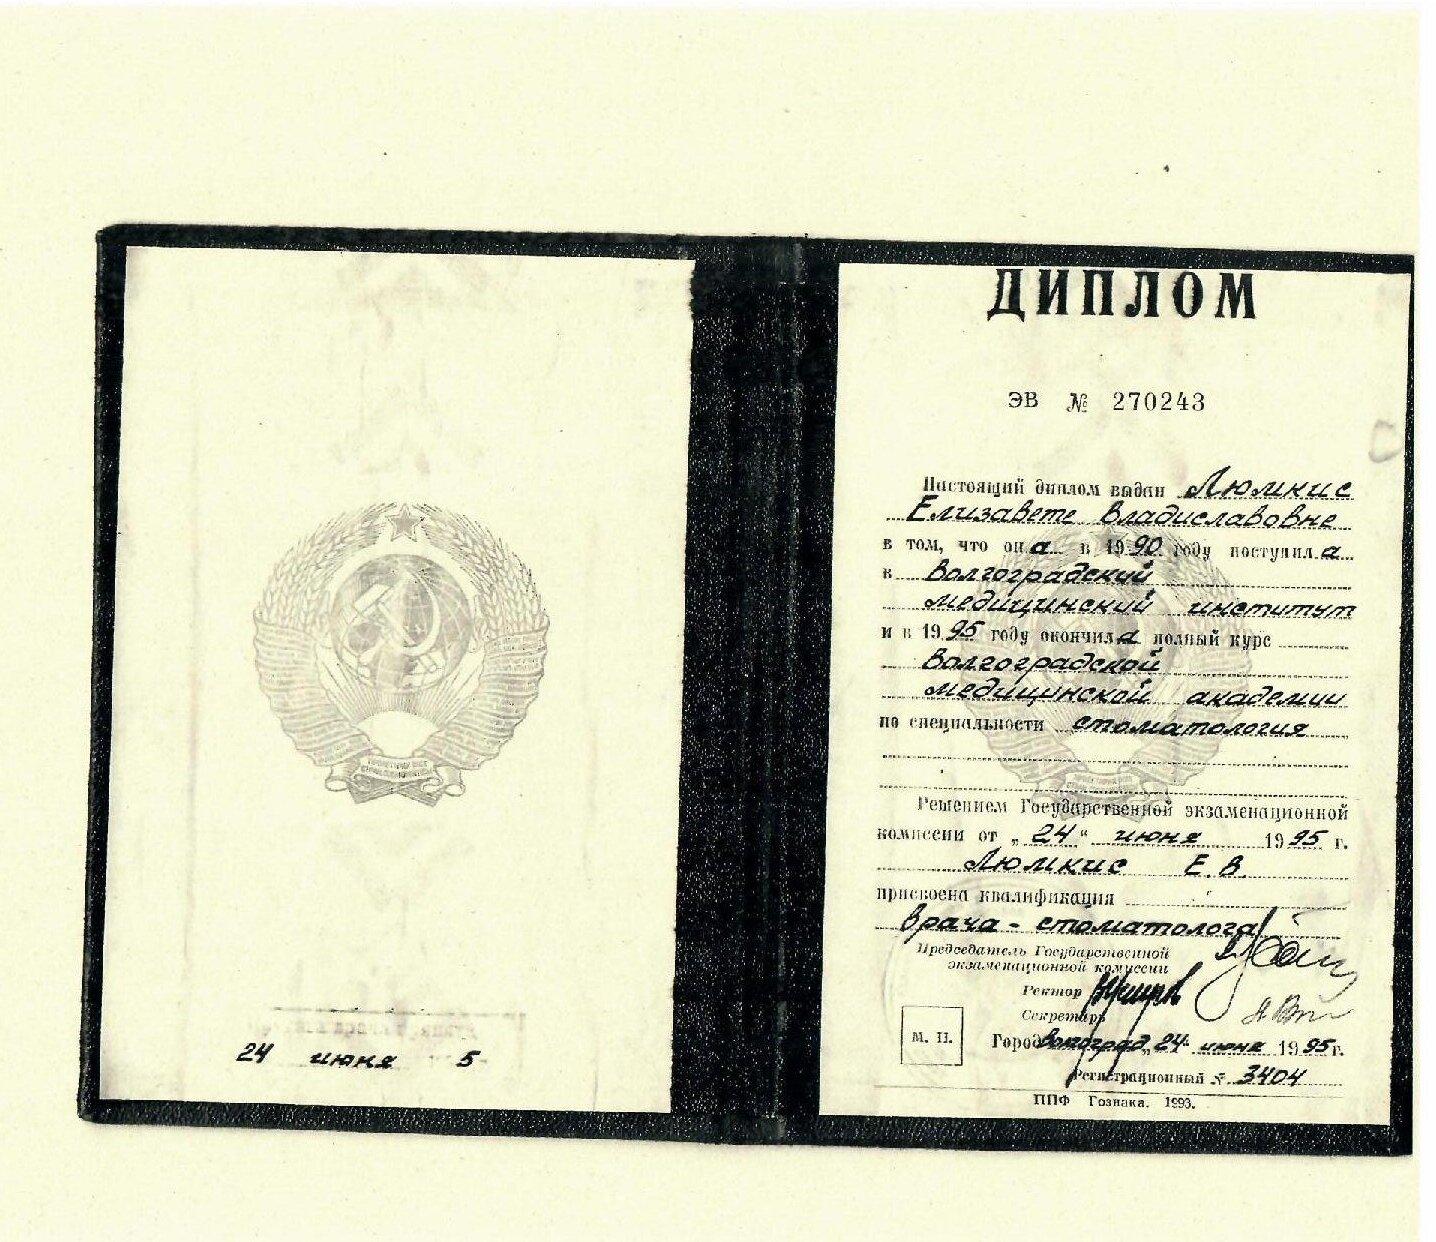 24 июня 5
ДИПЛОМ
ЭВ № 270243
Настоящий диплом выдан Люмкис
Елизавете Владиславовне
в том, что она в 1990 году поступила
в Волгоградский
медицинский институт
и в 1995 году окончила полный курс
Волгоградской
медицинской академии
по специальности стоматология
Решением Государственной экзаменационной
комиссии от „24“ июня 1995 г.
Люмкис Е. В.
присвоена квалификация
врача-стоматолога
Председатель Государственной
экзаменационной комиссии
Ректор
Секретарь
М. П.
Город Волгоград „24“ июня 1995 г.
Регистрационный № 3404
ППФ Гознака. 1993.